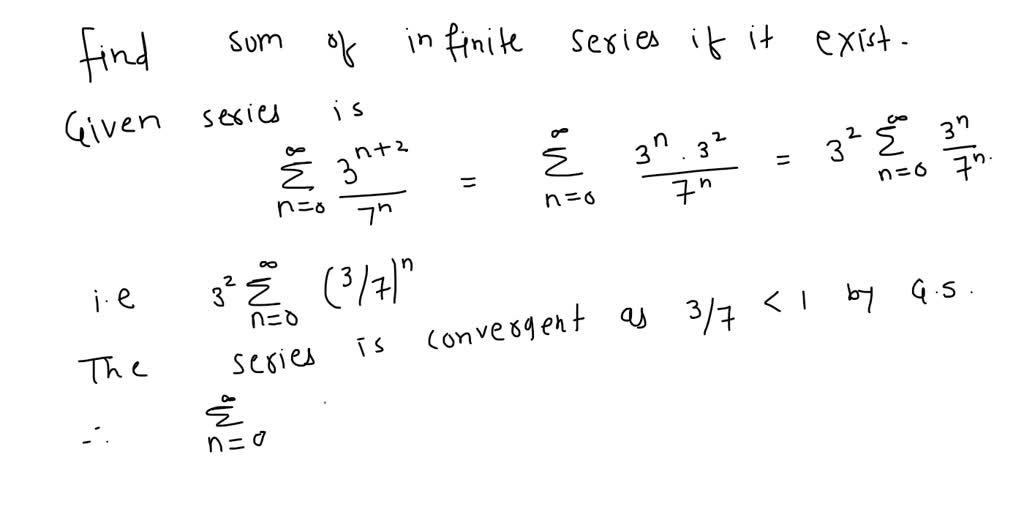 find sum of infinite series if it exist.
Given series is
∞ Σ n=0 3^{n+2}/7^n = ∞ Σ n=0 3^n . 3^2/7^n = 3^2 ∞ Σ n=0 3^n/7^n.
i.e 3^2 ∞ Σ n=0 (3/7)^n
The series is convergent as 3/7 < 1 by G.S.
∴ ∞ Σ n=0